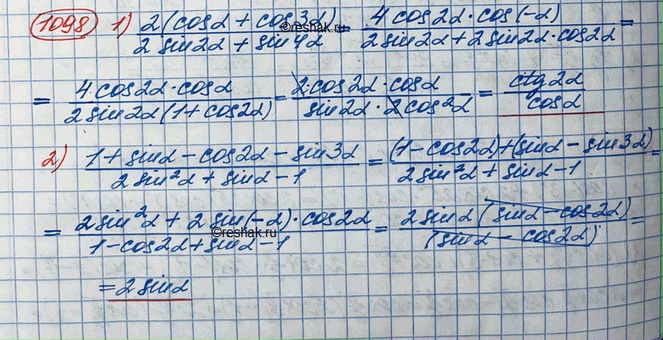 1098 1) 2(cosα + cos3α) / 2 sin2α + sin4α = 4 cos2α · cos(-α) / 2 sin2α + 2 sin2α · cos2α =
= 4 · cos2α · cosα / 2 sin2α (1 + cos2α) = 2 · cos2α · cosα / sin2α · 2 cos²α = ctg2α / cosα
2) 1 + sinα - cos2α - sin3α / 2 sin²α + sinα - 1 = (1 - cos2α) + (sinα - sin3α) / 2 sin²α + sinα - 1 =
= 2 sin²α + 2 sin(-α) · cos2α / 1 - cos2α + sinα - 1 = 2 sinα (sinα - cos2α) / (sinα - cos2α) =
= 2 sinα
©reshak.ru
©reshak.ru
©reshak.ru